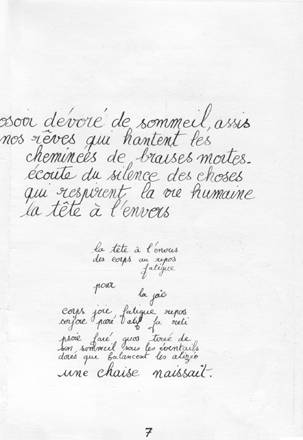 osoir dévoré de sommeil, assis
nos rêves qui hantent les
cheminées de braises mortes.
écoute du silence des choses
qui respirent la vie humaine
la tête à l'envers
la tête à l'envers
des corps au repos
fatigue
pour
la joie
corps joie fatigue repos
paré
de
son sommeil sous les éventails
dorés que balancent les alizés
une chaise naissait.
7